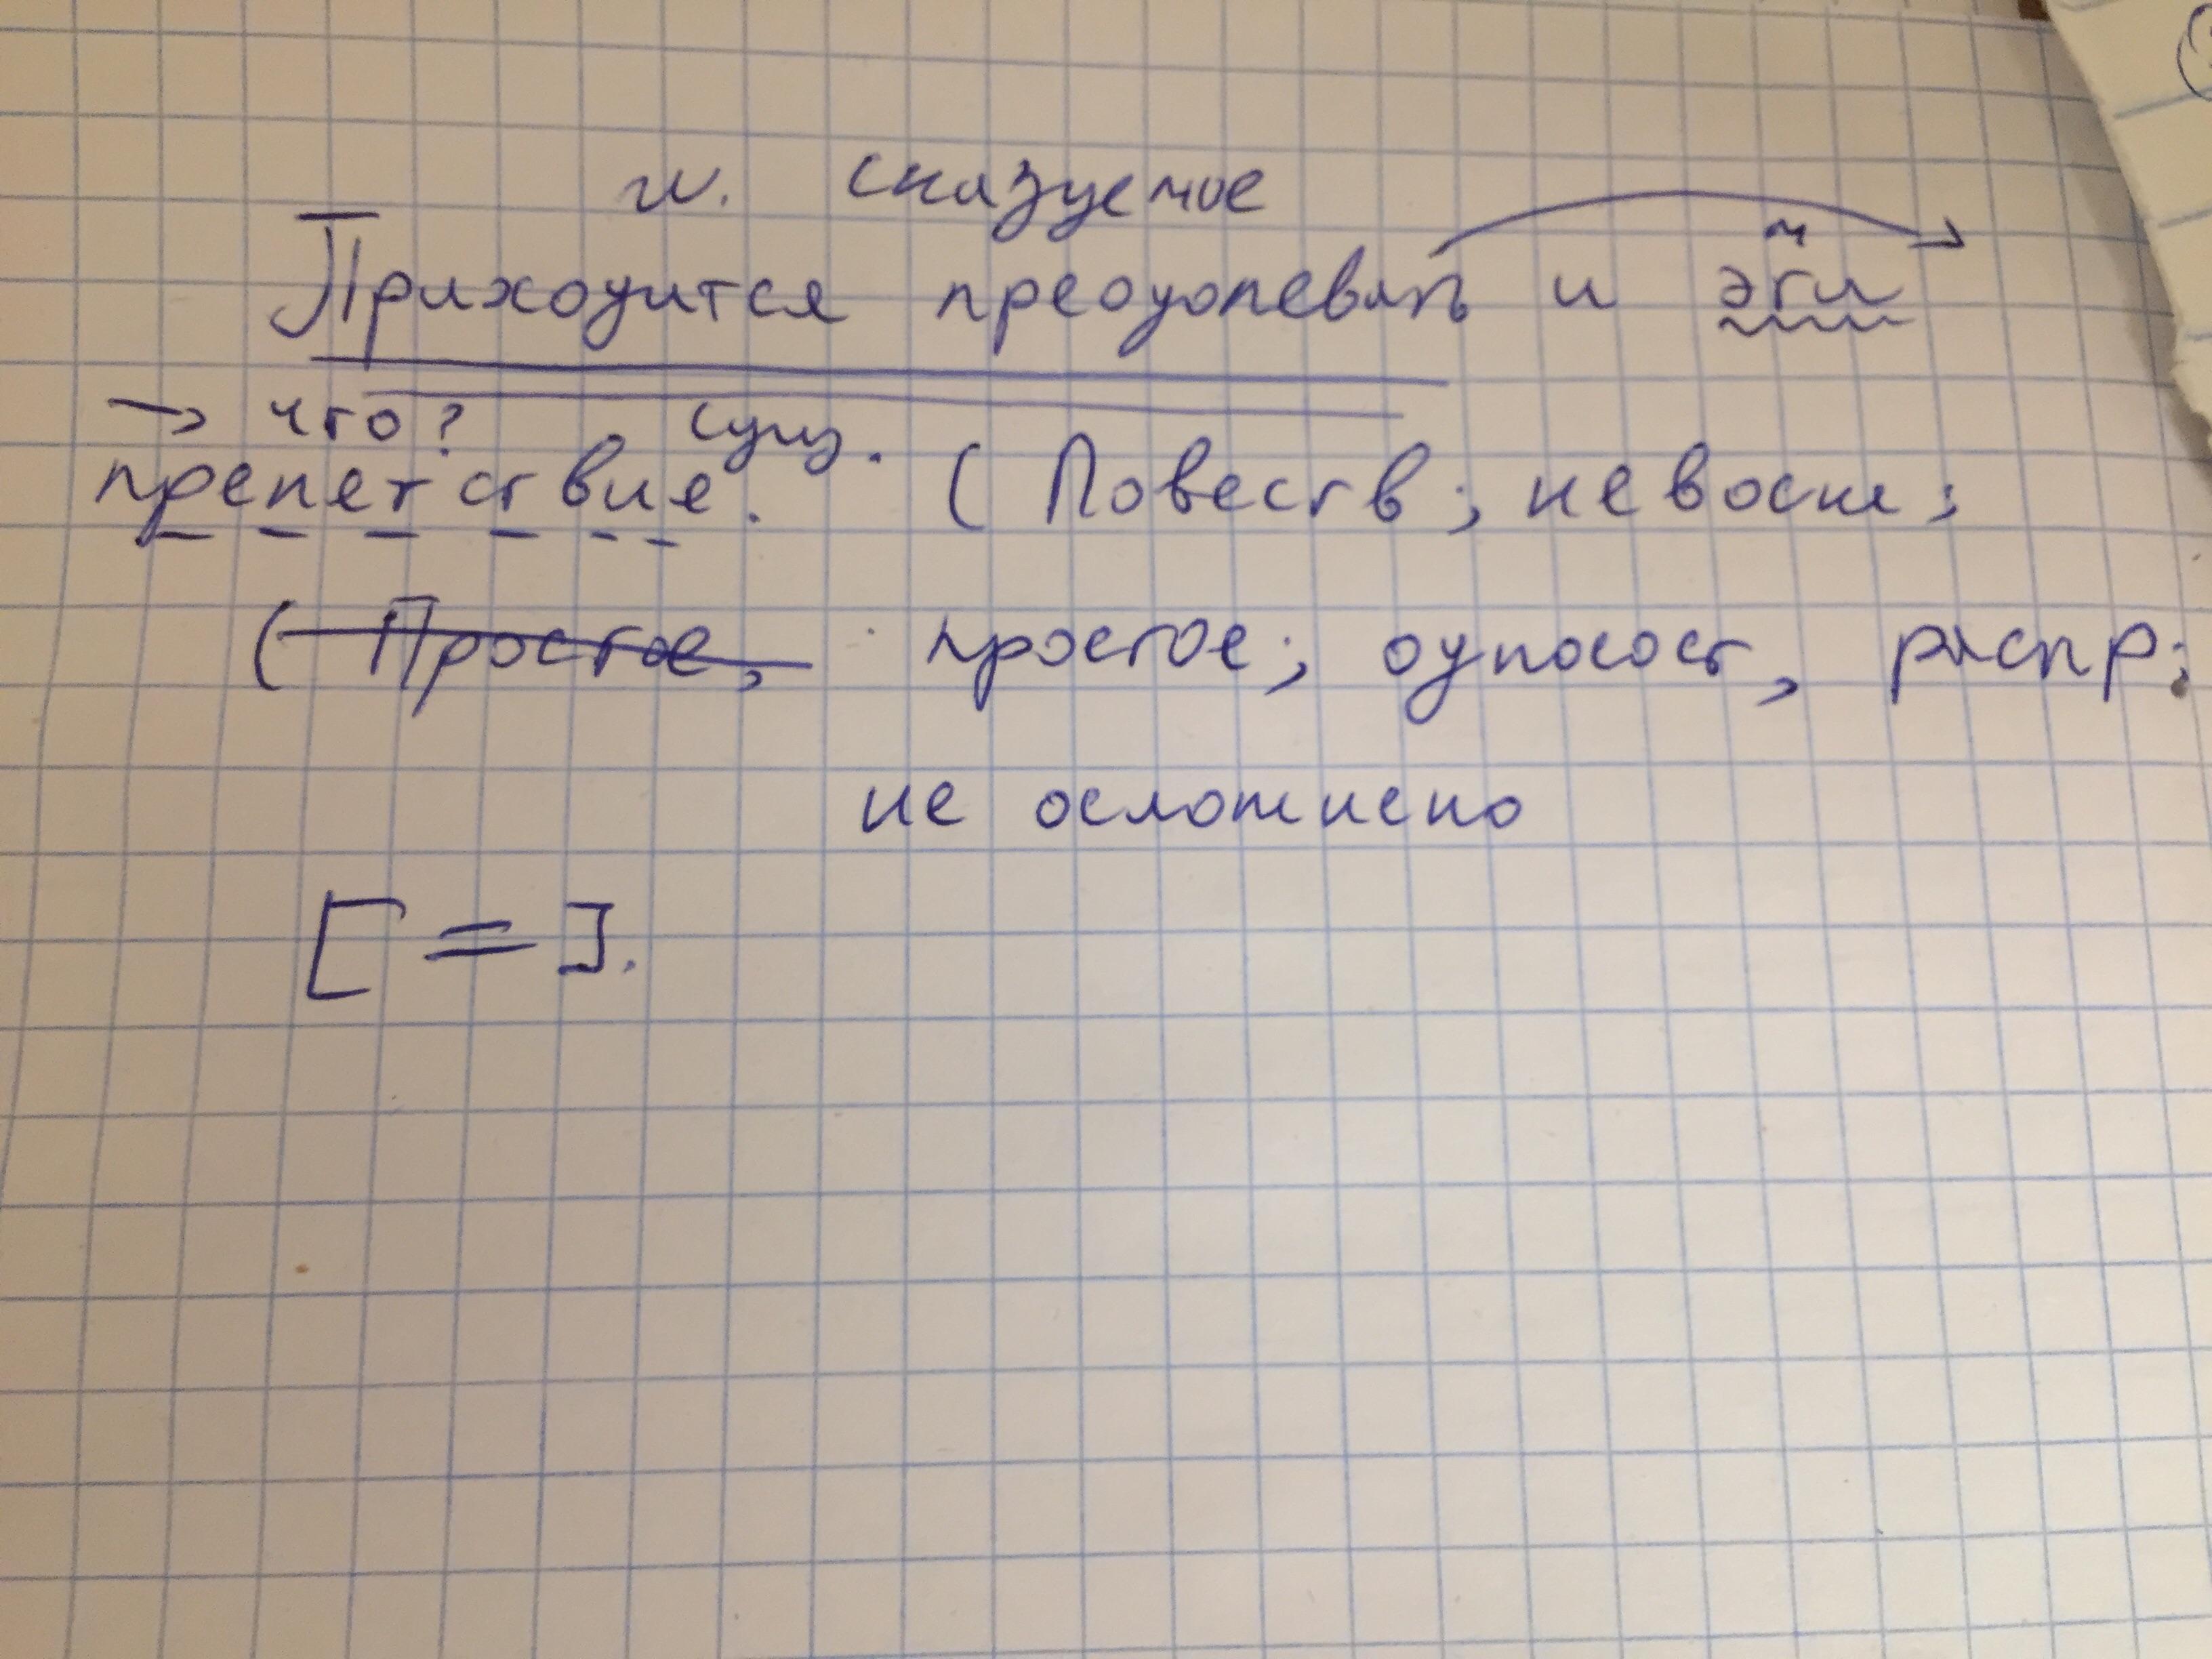 гл. сказуемое
Приходится преодолевать и эти
→ что? сущ.
препетствие. (Повеств; невоскл;
(Простое, простое; односост, распр;
не осложнено
[=].